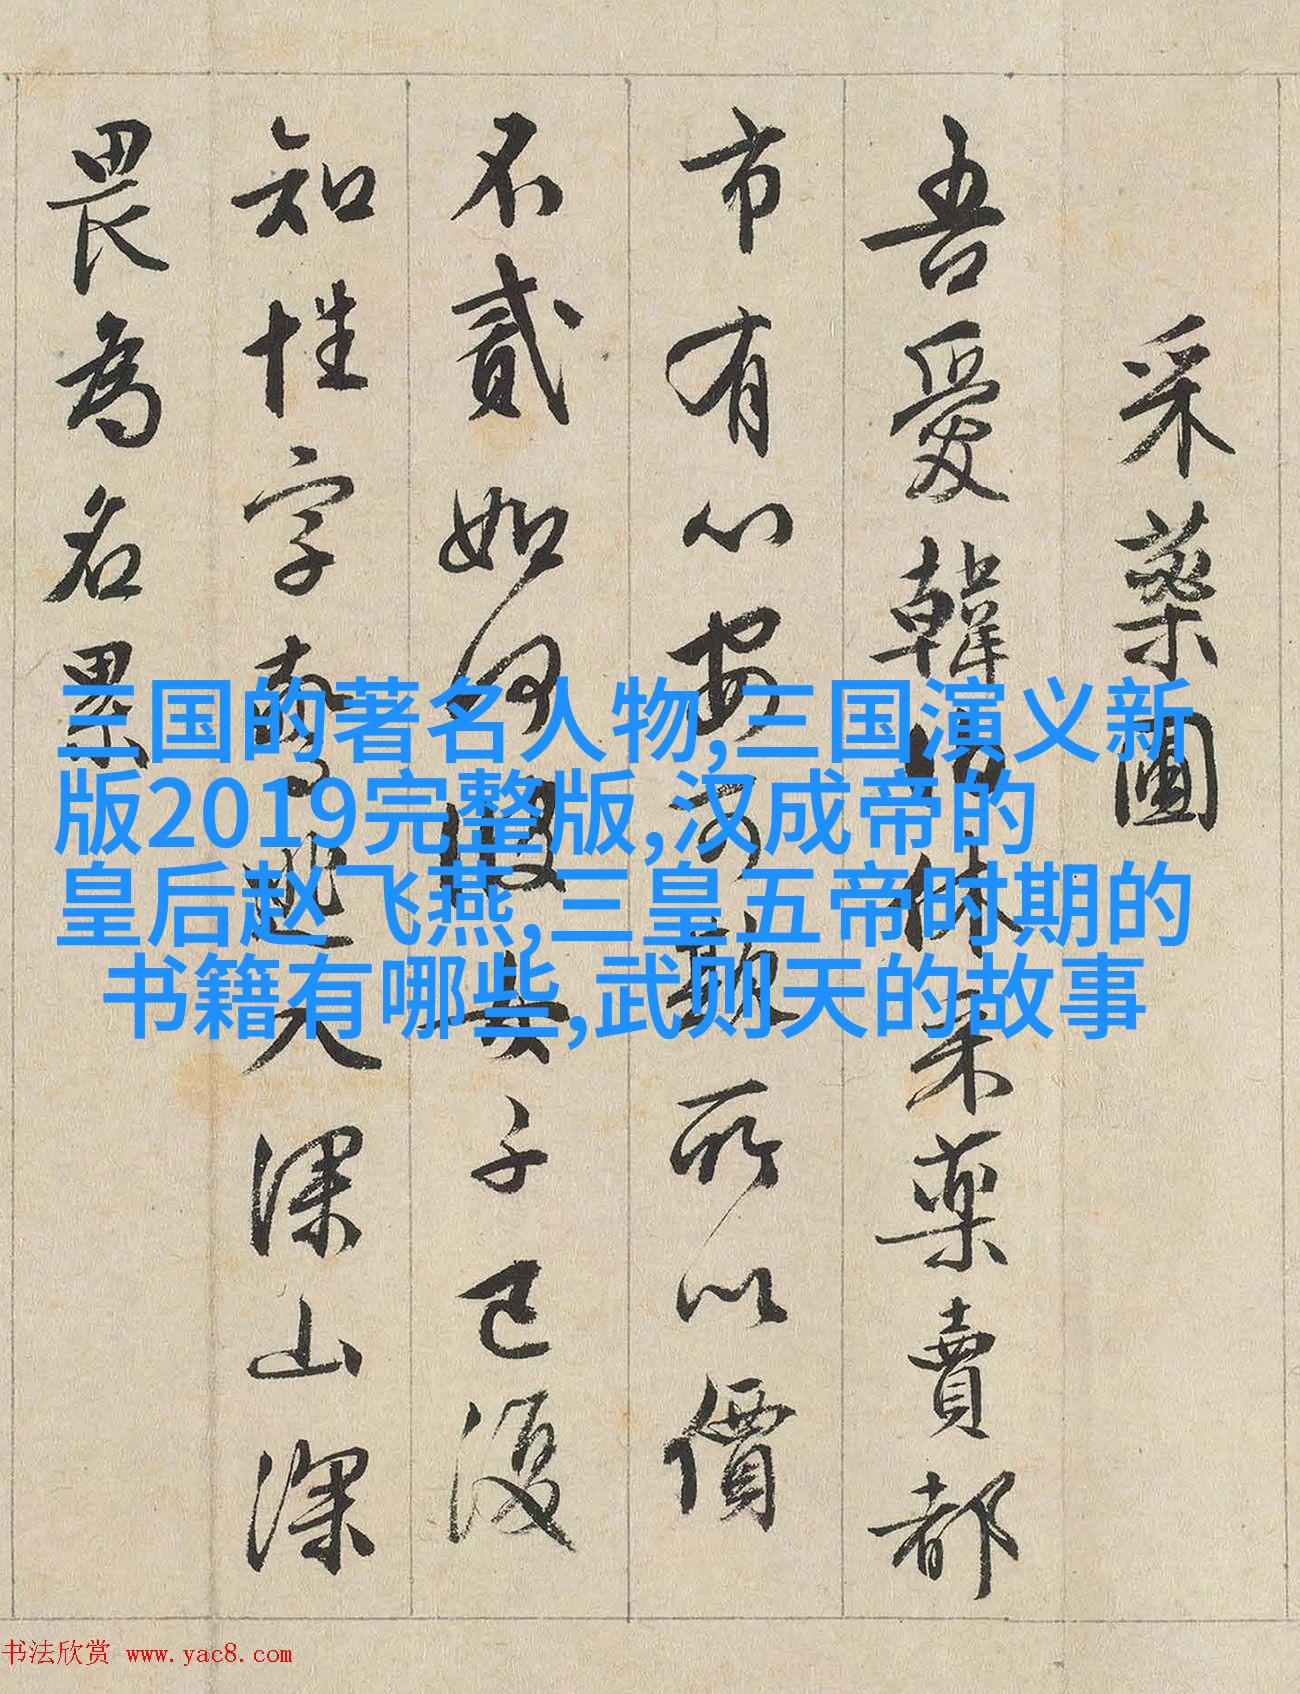 采藥圃
吾愛韓伯休采藥賣都
市有心安可欺所以價
不貳如何女子已復
知性字逃入深山深
畏為名累
三国的著名人物,三国演义新
版2019完整版,汉成帝的
皇后赵飞燕,三皇五帝时期的
书籍有哪些,武则天的故事
书法欣赏 www.yac8.com